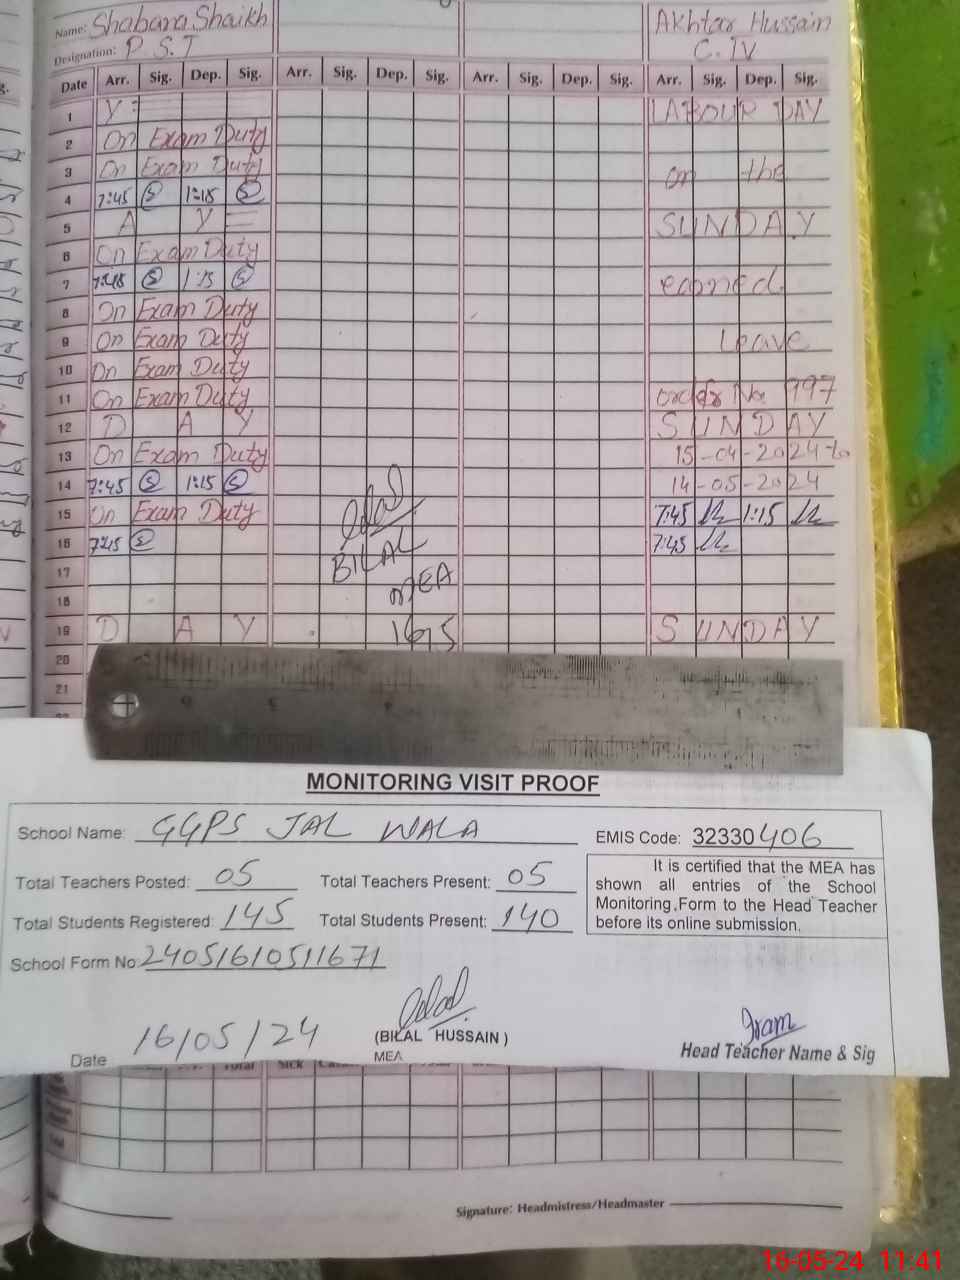 Name: Shabana Shaikh Akhtar Hussain
Designation: P. S. T C. IV
Date Arr. Sig. Dep. Sig. Arr. Sig. Dep. Sig. Arr. Sig. Dep. Sig. Arr. Sig. Dep. Sig.
1 Y LABOUR DAY
2 On Exam Duty
3 On Exam Duty on the
4 7:45 1:15
5 A Y SUNDAY
6 On Exam Duty
7 7:45 1:15 earned
8 On Exam Duty
9 On Exam Duty Leave
10 On Exam Duty
11 On Exam Duty order No 997
12 D A Y SUNDAY
13 On Exam Duty 15-04-2024 to
14 7:45 1:15 14-05-2024
15 On Exam Duty 7:45 1:15
16 7:45 BILAL 7:45
17 MEA
18
19 D A Y 16/5 SUNDAY
20
21
MONITORING VISIT PROOF
School Name: GGPS JAL WALA
EMIS Code: 32330406
Total Teachers Posted: 05 Total Teachers Present: 05
Total Students Registered: 145 Total Students Present: 140
It is certified that the MEA has
shown all entries of the School
Monitoring Form to the Head Teacher
before its online submission.
School Form No: 24051610511671
Date 16/05/24
(BILAL HUSSAIN)
MEA
Iram
Head Teacher Name & Sig
Total Sick
Signature: Headmistress/Headmaster
16-05-24 11:41